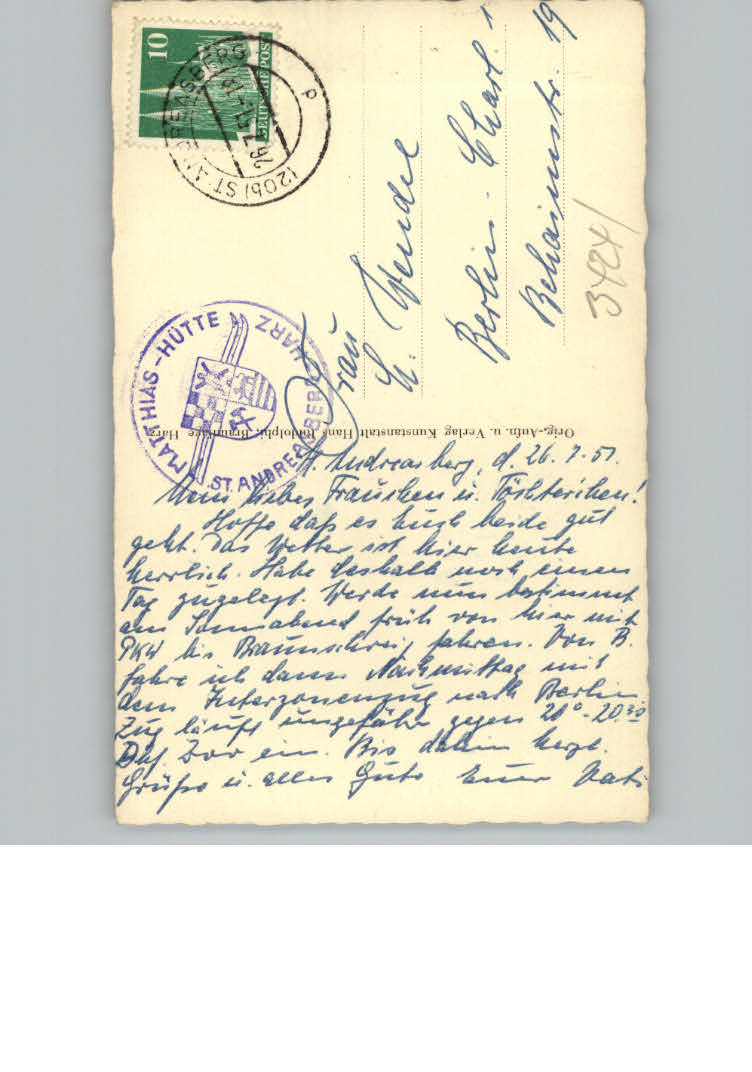 10
DEUTSCHE POST
(20b) ST. ANDREASBERG
26.7.51.-18
p
Frau
H. Wendel
Berlin-Charl. 1
Behaimstr. 19
3424/
MATTHIAS-HÜTTE
ST. ANDREASBERG HARZ
Orig.-Aufn. u. Verlag Kunstanstalt Hans Rudolphi, Braunlage Harz
St. Andreasberg, d. 26.7.51.
Mein liebes Frauchen u. Töchterchen!
Hoffe daß es Euch beide gut
geht. Das Wetter ist hier heute
herrlich. Habe deshalb noch einen
Tag zugelegt. Werde nun bestimmt
am Sonnabend früh von hier mit
PKW bis Braunschweig fahren. Von B.
fahre ich dann Nachmittag mit
dem Interzonenzug nach Berlin.
Zug läuft ungefähr gegen 20°-20.30
Bhf. Zoo ein. Bis dahin herzl.
Grüße u. alles Gute Euer Vati